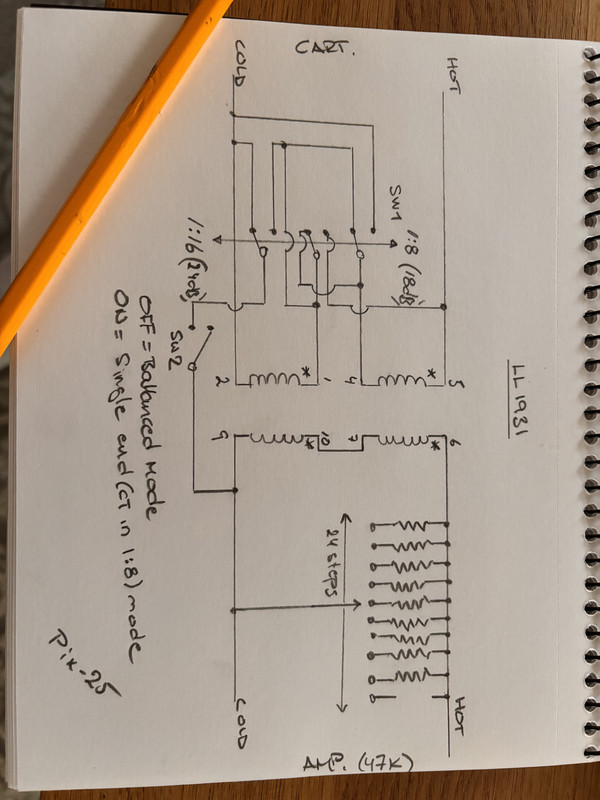 LL1931
CART.
AMP. (47K)
HOT
HOT
COLD
COLD
SW1
1:8 (18dB)
1:16 (24dB)
SW2
5
*
4
1
*
2
6
*
7
10
*
9
24 steps
OFF = Balanced mode
ON = Single end (CT in 1:8) mode
Pix-25